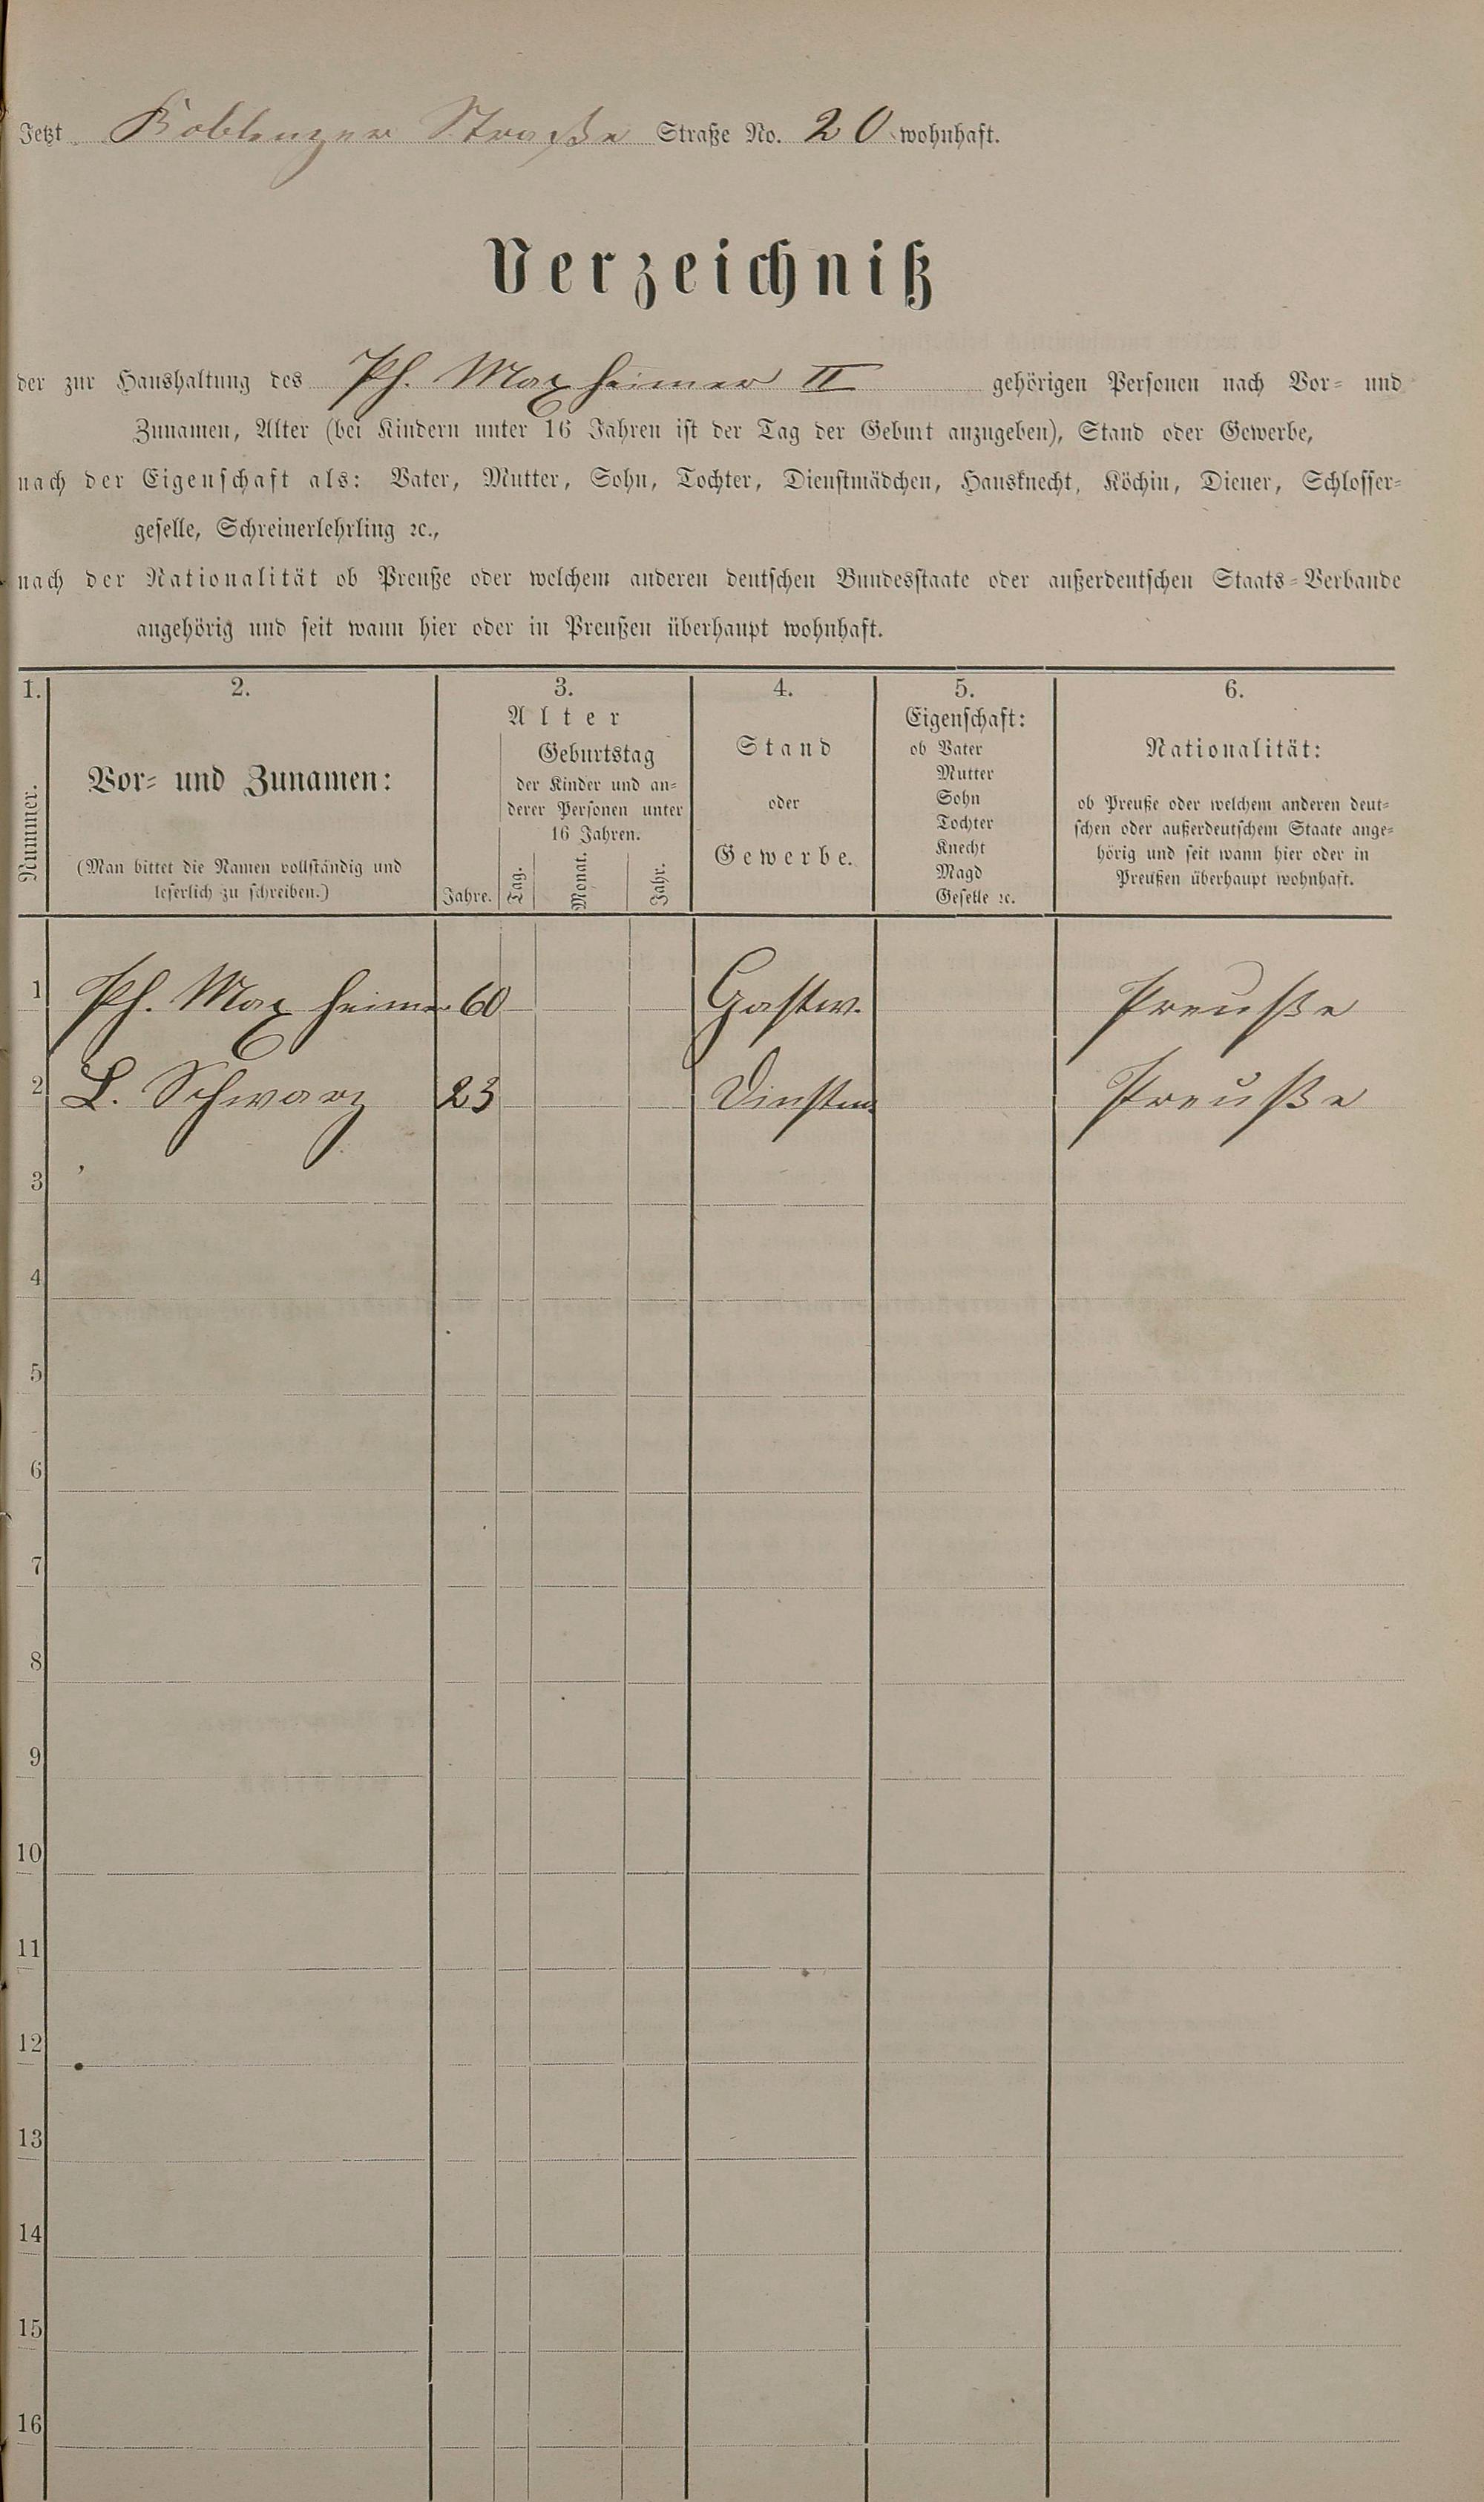 Jetzt Koblenzer Straße Straße No. 20 wohnhaft.
Verzeichniß
der zur Haushaltung des Ph. Maxheimer II gehörigen Personen nach Vor- und
Zunamen, Alter (bei Kindern unter 16 Jahren ist der Tag der Geburt anzugeben), Stand oder Gewerbe,
nach der Eigenschaft als: Vater, Mutter, Sohn, Tochter, Dienstmädchen, Hausknecht, Köchin, Diener, Schlosser-
geselle, Schreinerlehrling ꝛc.,
nach der Nationalität ob Preuße oder welchem anderen deutschen Bundesstaate oder außerdeutschen Staats-Verbande
angehörig und seit wann hier oder in Preußen überhaupt wohnhaft.
1.
Nummer.
2.
Vor- und Zunamen:
(Man bittet die Namen vollständig und
leserlich zu schreiben.)
3.
Alter
Jahre.
Geburtstag
der Kinder und an-
derer Personen unter
16 Jahren.
Tag.
Monat.
Jahr.
4.
Stand
oder
Gewerbe.
5.
Eigenschaft:
ob Vater
Mutter
Sohn
Tochter
Knecht
Magd
Geselle ꝛc.
6.
Nationalität:
ob Preuße oder welchem anderen deut-
schen oder außerdeutschem Staate ange-
hörig und seit wann hier oder in
Preußen überhaupt wohnhaft.
1 Ph. Maxheimer 60 Gastw. Preuße
2 L. Schwarz 23 Dinstm. Preuße
3
4
5
6
7
8
9
10
11
12
13
14
15
16